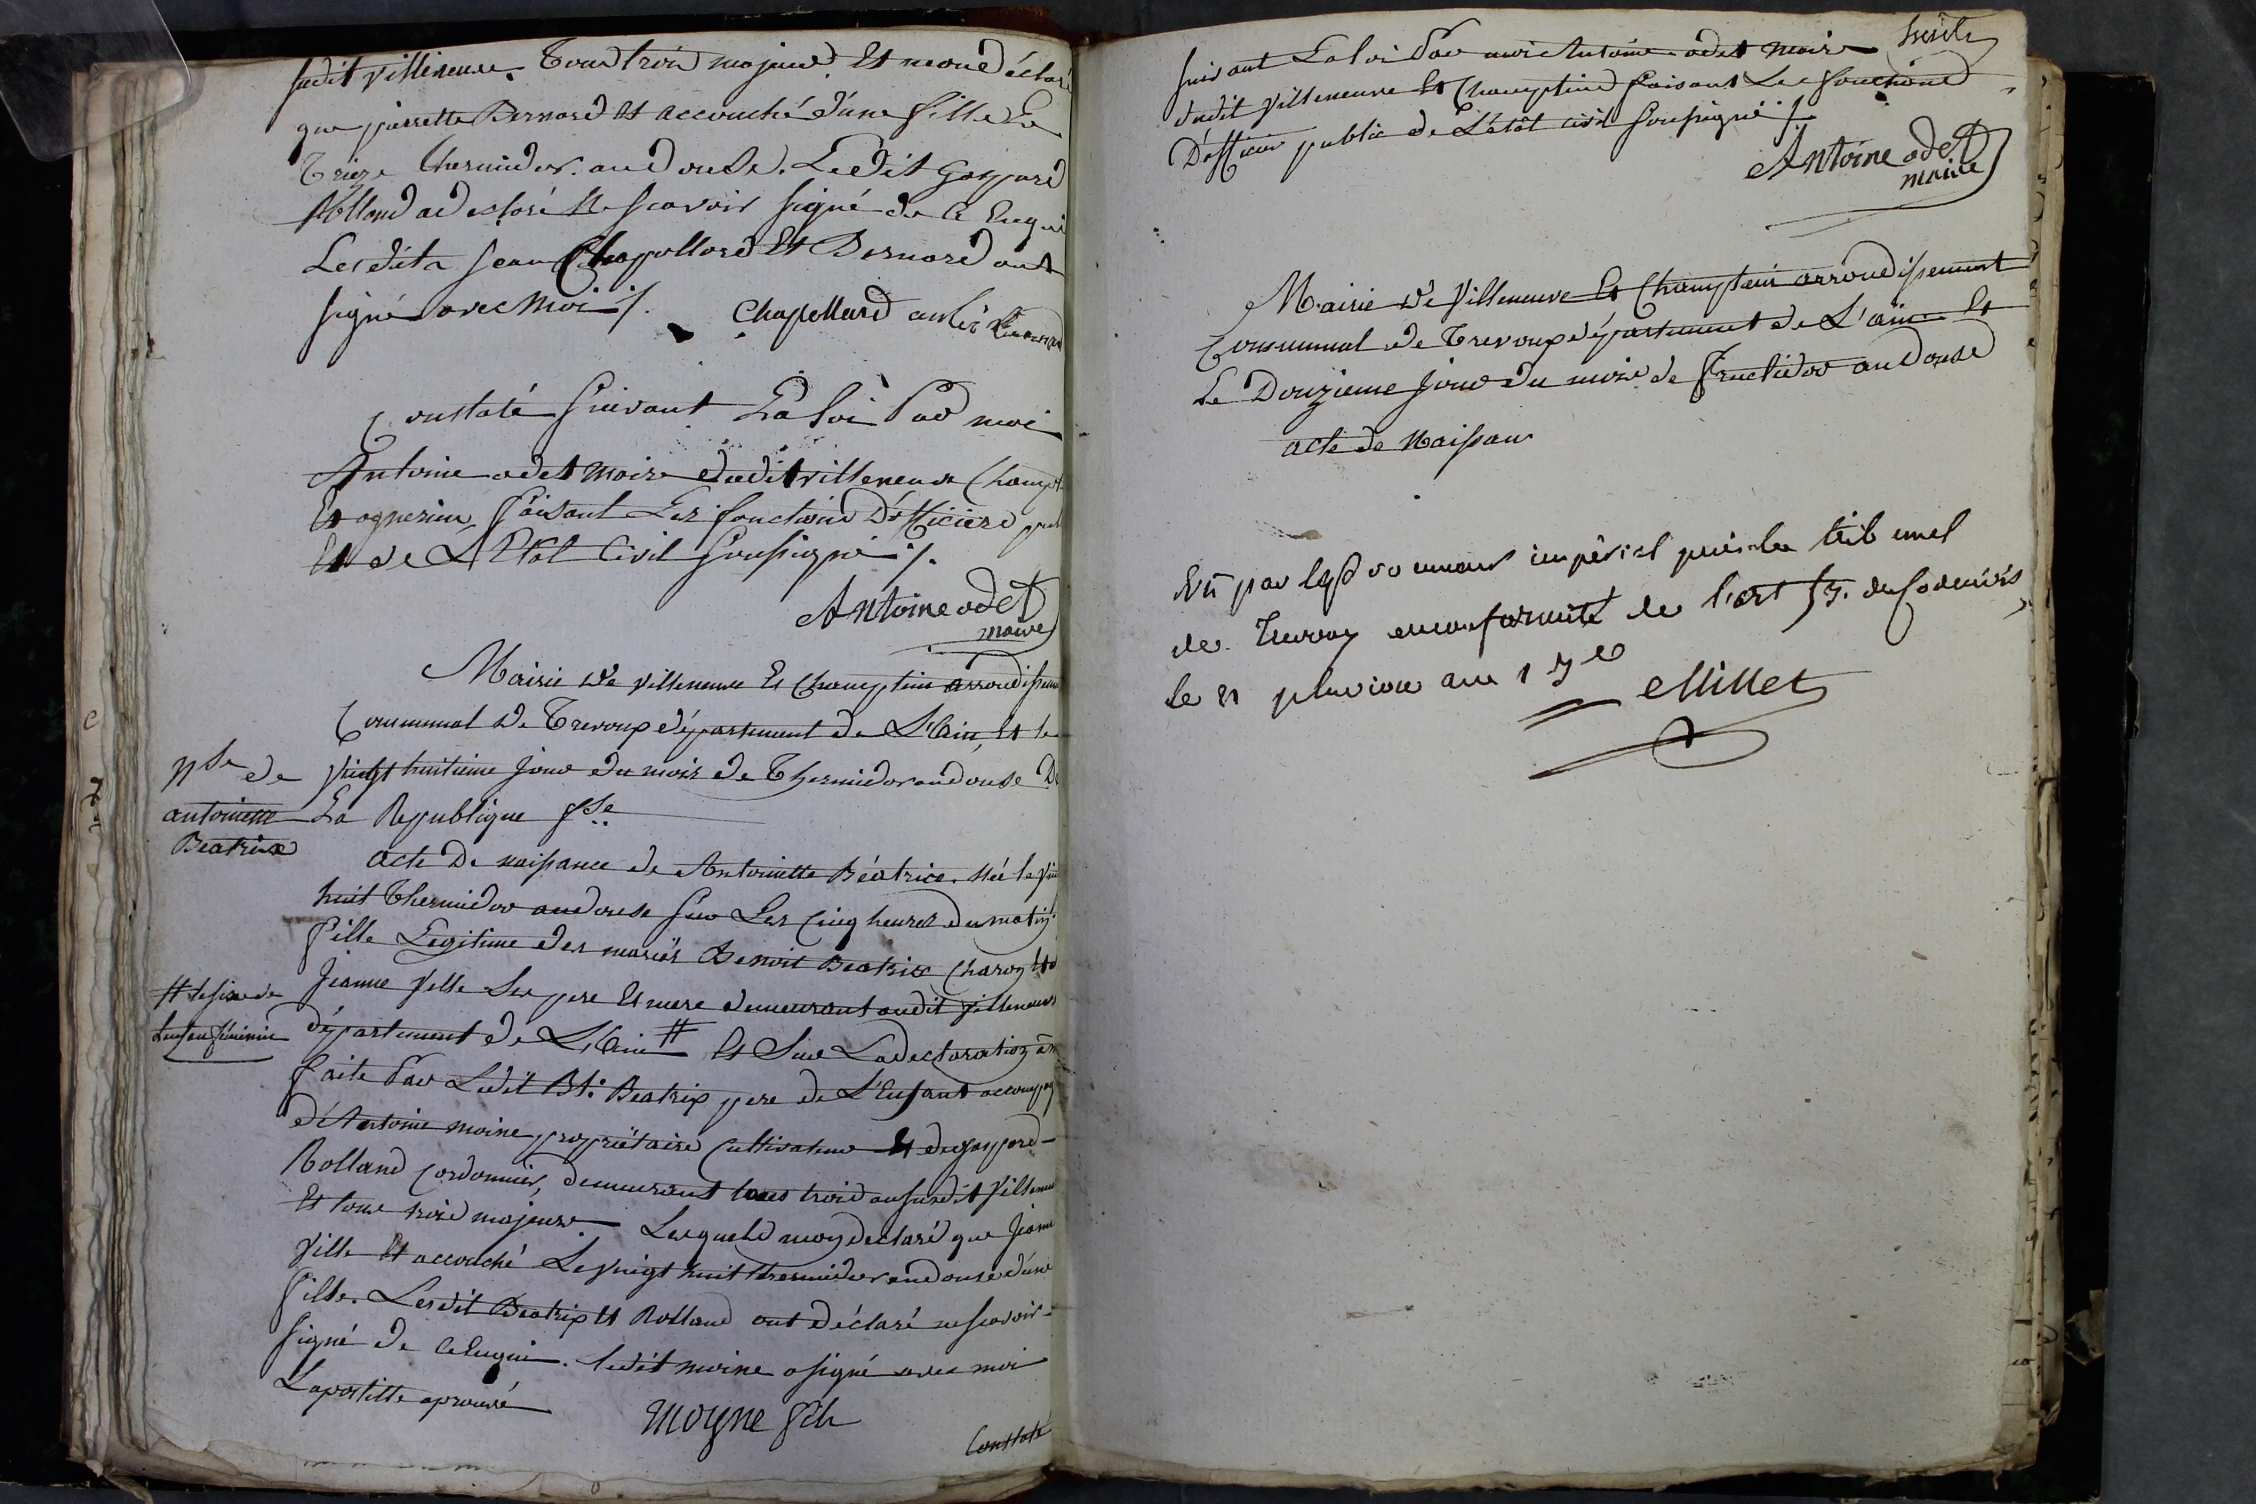 sudit villeneuve. Tous trois majeurs. Et m'ont déclaré
que pierrette Bernard Et accouché d'une fille Le
Treize thermidor. an douse. Ledit Gaspard
Rolland a déclaré Ne scavoir signé de Ce Enqui
Lesdits jean Chapellard Et Bernard ont
signé avec Moi ./.
Chapellard
Constaté suivant La Loi Par moi
Antoine odet Maire dudit villeneuve Champt
Et agnerins, faisant Les fonctions D'officiers pub
Et de L'Etat Civil soussigné ./.
Antoine odet
maire
Mairie de villeneuve Et Champtein arrondissem
Communal de Trevoux département de L'Ain, Et le
vingt huitieme jour du mois de Thermidor an douse De
La Republique fse
Nse de
antoinette
Beatrix
acte De naissance de Antoinette Béatrice. Née le vin
huit Thermidor an douse sur Les Cinq heures du matin
fille Legitime des mariés Benoit Beatrix Charon Et
Jeanne velle Ses pere Et mere demeurant audit villeneuve
département de L'Ain # Et Sur La declaration à m
# le sixe de
Lenfan féminin
faite Par Ledit Bt. Beatrix pere de L'Enfant accompag
d'Antoine moine propriètaire Cultivateur Et de gaspard
Rolland Cordonnier, demeurant tous trois au susdit villeneuve
Et tous trois majeurs. Lesquels m'on declaré que Jeanne
Velle Et accouché Le vingt huit thermidor an douse d'une
fille. Lesdit Beatrix Et Rolland ont déclaré ne scavoir
signé de Ce Enquis. Ledit moine a signé avec moi
Lapostille aprouvé
Moyne fils
Constaté
suivant La Loi Par moi Antoine odet maire
dudit villeneuve Et Champtein faisant Les fonctions
D'officier public de L'état civil soussigné ./.
Antoine odet
maire
Mairie de Villeneuve Et Champtein arrondissement
Communal de Trevoux département de L'ain Et
Le Douzieme jour du mois de fructidor an douse
acte de Naissan
Vû par le procureur impérial près le tribunal
de Trevoux en conformité de l'art 53. du Code civil
le 21 pluviose an 13e
Millet